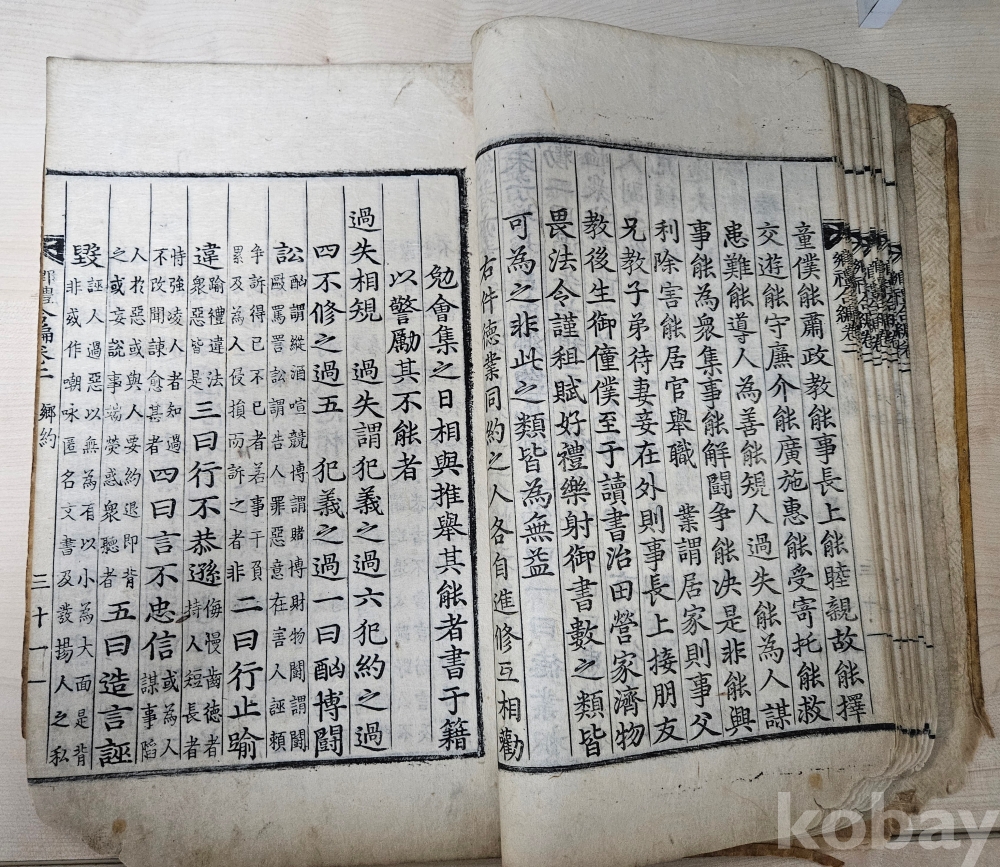 鄉禮合編卷二
童僕能肅政教能事長上能睦親故能擇
交遊能守廉介能廣施惠能受寄托能救
患難能導人為善能規人過失能為人謀
事能為衆集事能解鬪争能决是非能興
利除害能居官舉職 業謂居家則事父
兄教子弟待妻妾在外則事長上接朋友
教後生御僮僕至于讀書治田營家濟物
畏法令謹租賦好禮樂射御書數之類皆
可為之非此之類皆為無益
右件德業同約之人各自進修互相勸
勉會集之日相與推舉其能者書于籍
以警勵其不能者
過失相規 過失謂犯義之過六犯約之過
四不修之過五 犯義之過一曰酗博鬪
訟 酗謂縱酒喧競博謂賭博財物鬪謂鬪毆罵詈訟謂告人罪惡意在害人誣頼
争訴得已不已者若事干負累及為人侵損而訴之者非 二曰行止踰
違 踰禮違法衆惡皆是 三曰行不恭遜 侮慢齒德者持人短長者
恃強凌人者知過不改聞諫愈甚者 四曰言不忠信 或為人謀事陷
人扵惡或與人要約退即背之或妄説事端熒惑衆聽者 五曰造言誣
毀 誣人過惡以無為有以小為大面是背非或作嘲咏匿名文書及發揚人之私
鄉禮合編卷二 鄉約 三十一
kobay